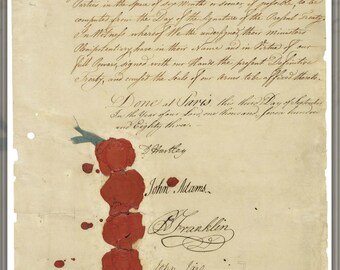 Parties in the Space of Six Months or sooner, if possible, to be
computed from the Day of the Signature of the Present Treaty.
In Witness whereof We the undersigned, their Ministers
Plenipotentiary, have in their Name and in Virtue of our
Full Powers, signed with our Hands the present Definitive
Treaty, and caused the Seals of our Arms to be affixed thereto.
Done at Paris, this third Day of September,
In the Year of our Lord one thousand seven hundred
and Eighty three.
D Hartley
John Adams.
B Franklin
John Jay